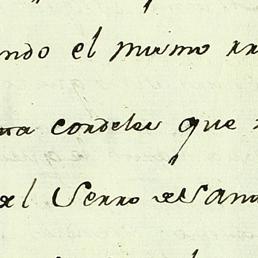 ndo el mismo
cordeles que
el Serro de San